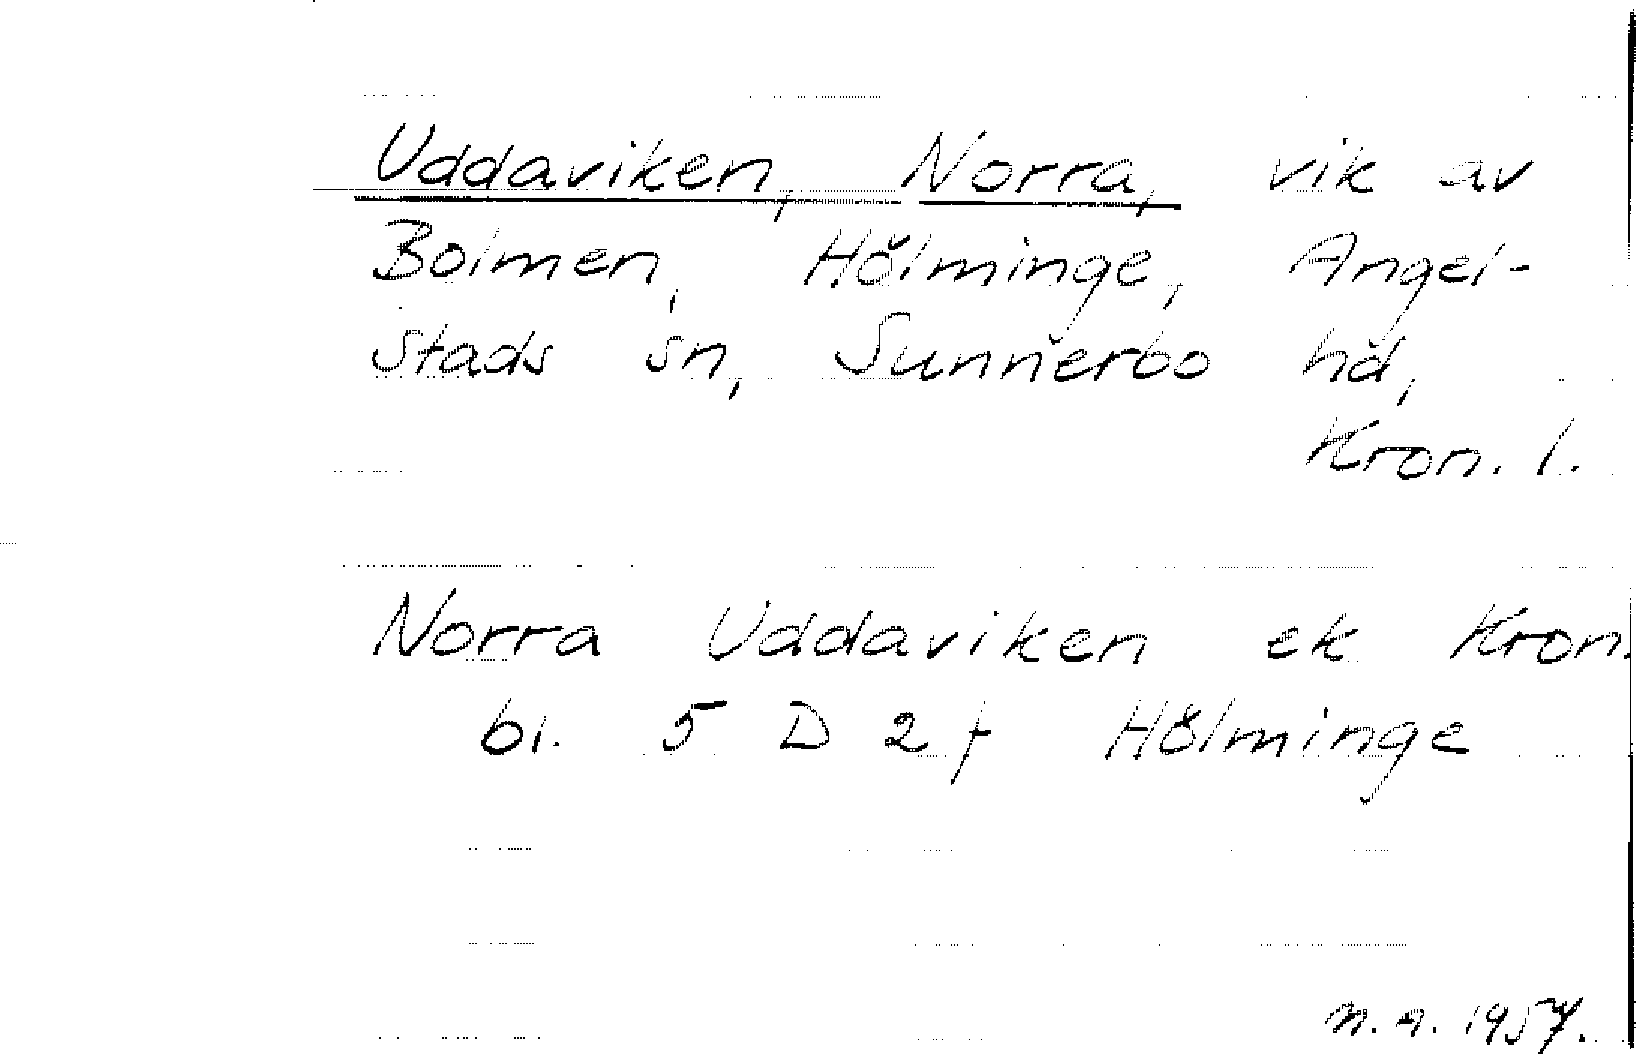 Uddaviken, Norra, vik av
Bolmen, Hölminge, Angel-
stads sn, Sunnerbo hd,
Kron. l.
Norra Uddaviken ek Kron.
bl. 5 D 2 f Hölminge
n. a. 1957.